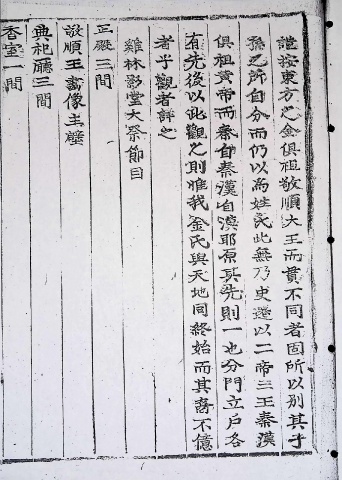 謹按東方之金俱祖敬順大王而貫不同者固所以別其子
孫之所自分而仍以為姓氏此無乃史遷以二帝三王秦漢
俱祖黃帝而秦自秦漢自漢耶原其先則一也分門立戶各
有先後以此觀之則惟我金氏與天地同終始而其裔不億
者乎觀者詳之
雞林影堂大祭節目
正殿三間
敬順王畫像主壁
典祀廳三間
香室一間